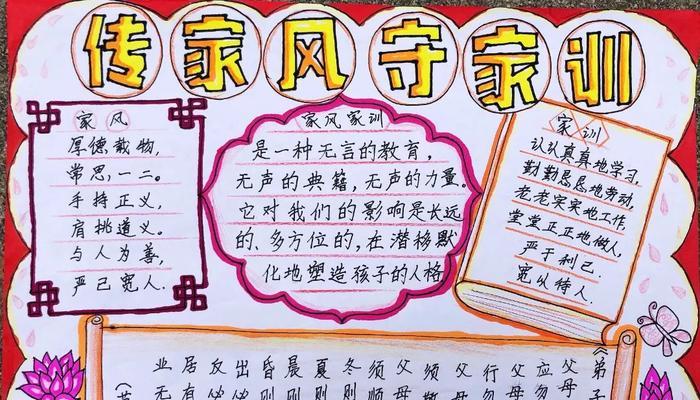 传家风守家训
家风
厚德载物,
常思,一二。
手持正义,
肩挑道义。
与人为善,
严己宽人.
家风家训
是一种无言的教育,
无声的典籍,无声的力量。
它对我们的影响是长远
的、多方位的,在潜移默
化地塑造孩子的人格
家训
认认真真地学习,
勤勤恳恳地劳动,
老老实实地工作,
堂堂正正地做人,
严于利己.
宽以待人.
《弟子
父母
应勿
父母
行勿
父母
须
父母
须顺
冬则
夏则
晨则
昏则
出
反
居有
业无